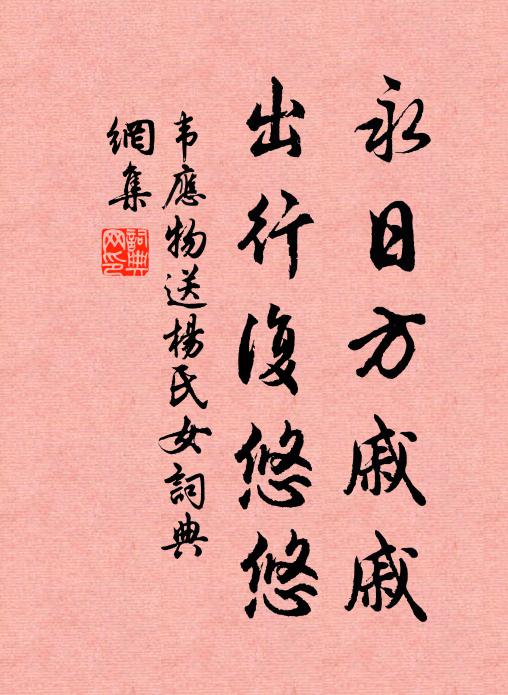 永日方戚戚
出行復悠悠
韦應物送楊氏女詞典
網集
詞典
网印